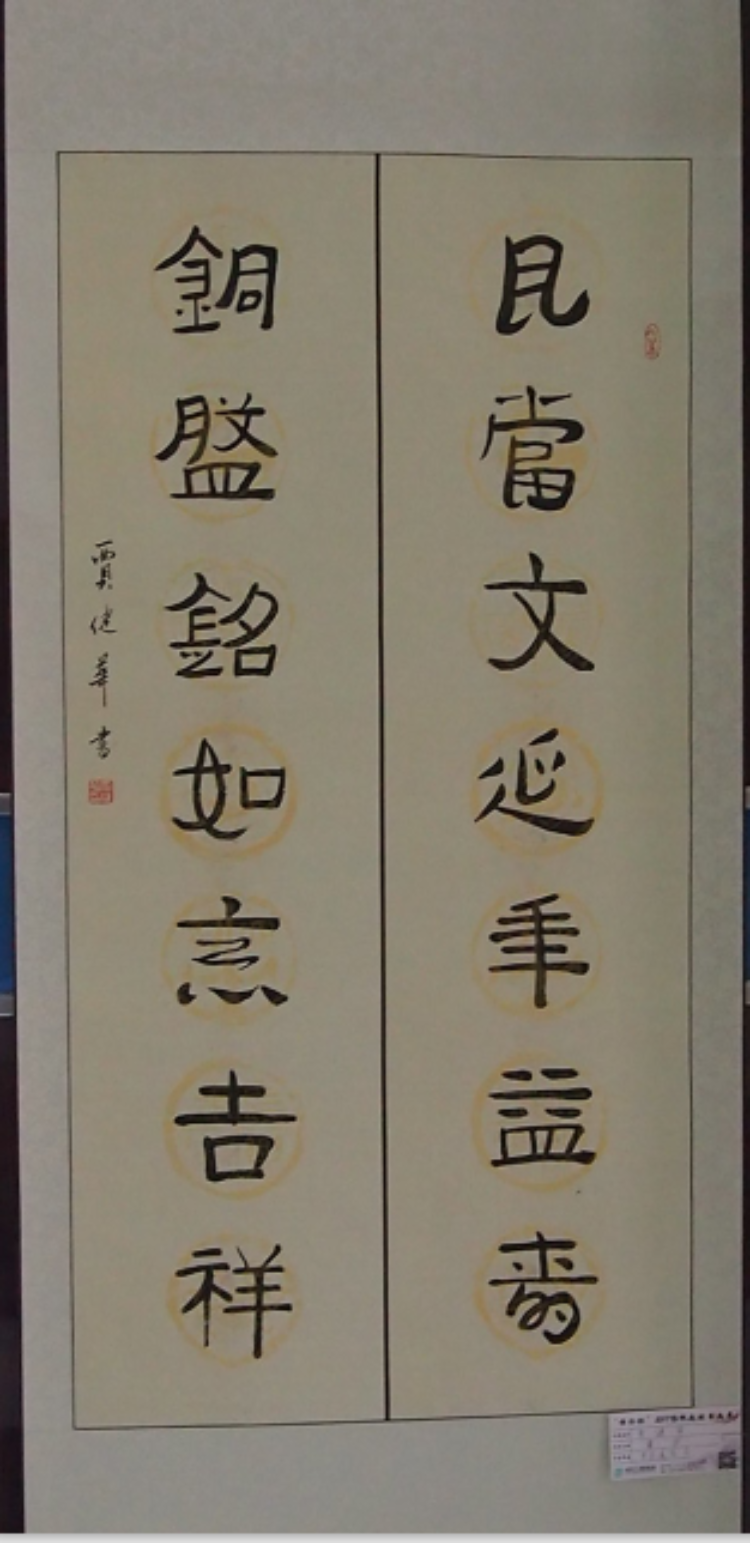 瓦當文延年益壽
銅盤銘如意吉祥
賈健華書